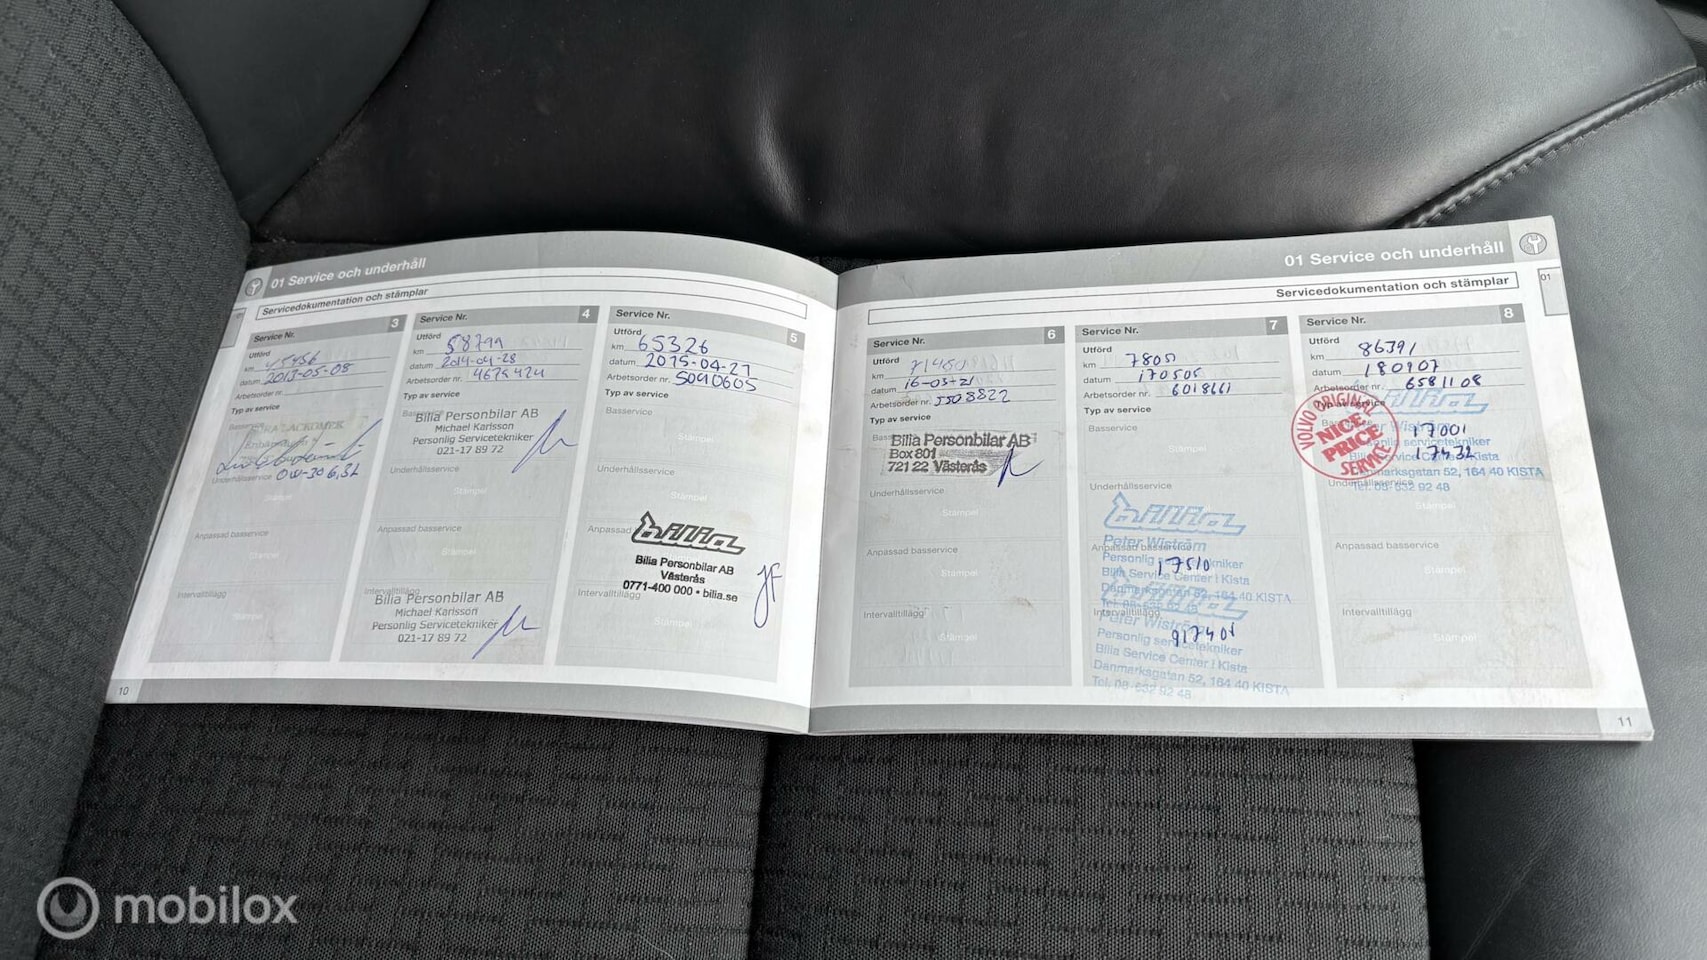 01 Service och underhåll
Servicedokumentation och stämplar
Service Nr. 3
Utförd
km 45456
datum 2013-05-08
Arbetsorder nr.
Typ av service
Underhållsservice 0W-30 6,3L
Stämpel
Anpassad basservice
Stämpel
Intervalltillägg
Stämpel
10
Service Nr. 4
Utförd
km 58799
datum 2014-04-28
Arbetsorder nr. 4679424
Typ av service
Basservice
Bilia Personbilar AB
Michael Karlsson
Personlig Servicetekniker
021-17 89 72
Underhållsservice
Stämpel
Anpassad basservice
Stämpel
Intervalltillägg
Bilia Personbilar AB
Michael Karlsson
Personlig Servicetekniker
021-17 89 72
Service Nr. 5
Utförd
km 65326
datum 2015-04-27
Arbetsorder nr. 5090605
Typ av service
Basservice
Stämpel
Underhållsservice
Stämpel
Anpassad
bilia
Bilia Personbilar AB
Västerås
0771-400 000 • bilia.se
Intervalltillägg
Stämpel
JF
01 Service och underhåll
01
Servicedokumentation och stämplar
Service Nr. 6
Utförd
km 71450
datum 16-03-21
Arbetsorder nr. 5508822
Typ av service
Bilia Personbilar AB
Box 801
721 22 Västerås
Underhållsservice
Stämpel
Anpassad basservice
Stämpel
Intervalltillägg
Stämpel
Service Nr. 7
Utförd
km 78051
datum 170505
Arbetsorder nr. 6018661
Typ av service
Basservice
Stämpel
Underhållsservice
bilia
Peter Wiström
Anpassad basservice
Personlig servicetekniker
17510
Bilia Service Center i Kista
Danmarksgatan 52, 164 40 KISTA
Tel. 08-632 92 48
Intervalltillägg
Peter Wiström
91740
Personlig servicetekniker
Bilia Service Center i Kista
Danmarksgatan 52, 164 40 KISTA
Tel. 08-632 92 48
Service Nr. 8
Utförd
km 86391
datum 180907
Arbetsorder nr. 6581108
Typ av service
bilia
VOLVO ORIGINAL
NICE
PRICE
SERVICE
17001
17432
servicetekniker
Service Center i Kista
Danmarksgatan 52, 164 40 KISTA
Tel. 08-632 92 48
Underhållsservice
Anpassad basservice
Stämpel
Intervalltillägg
Stämpel
11
mobilox